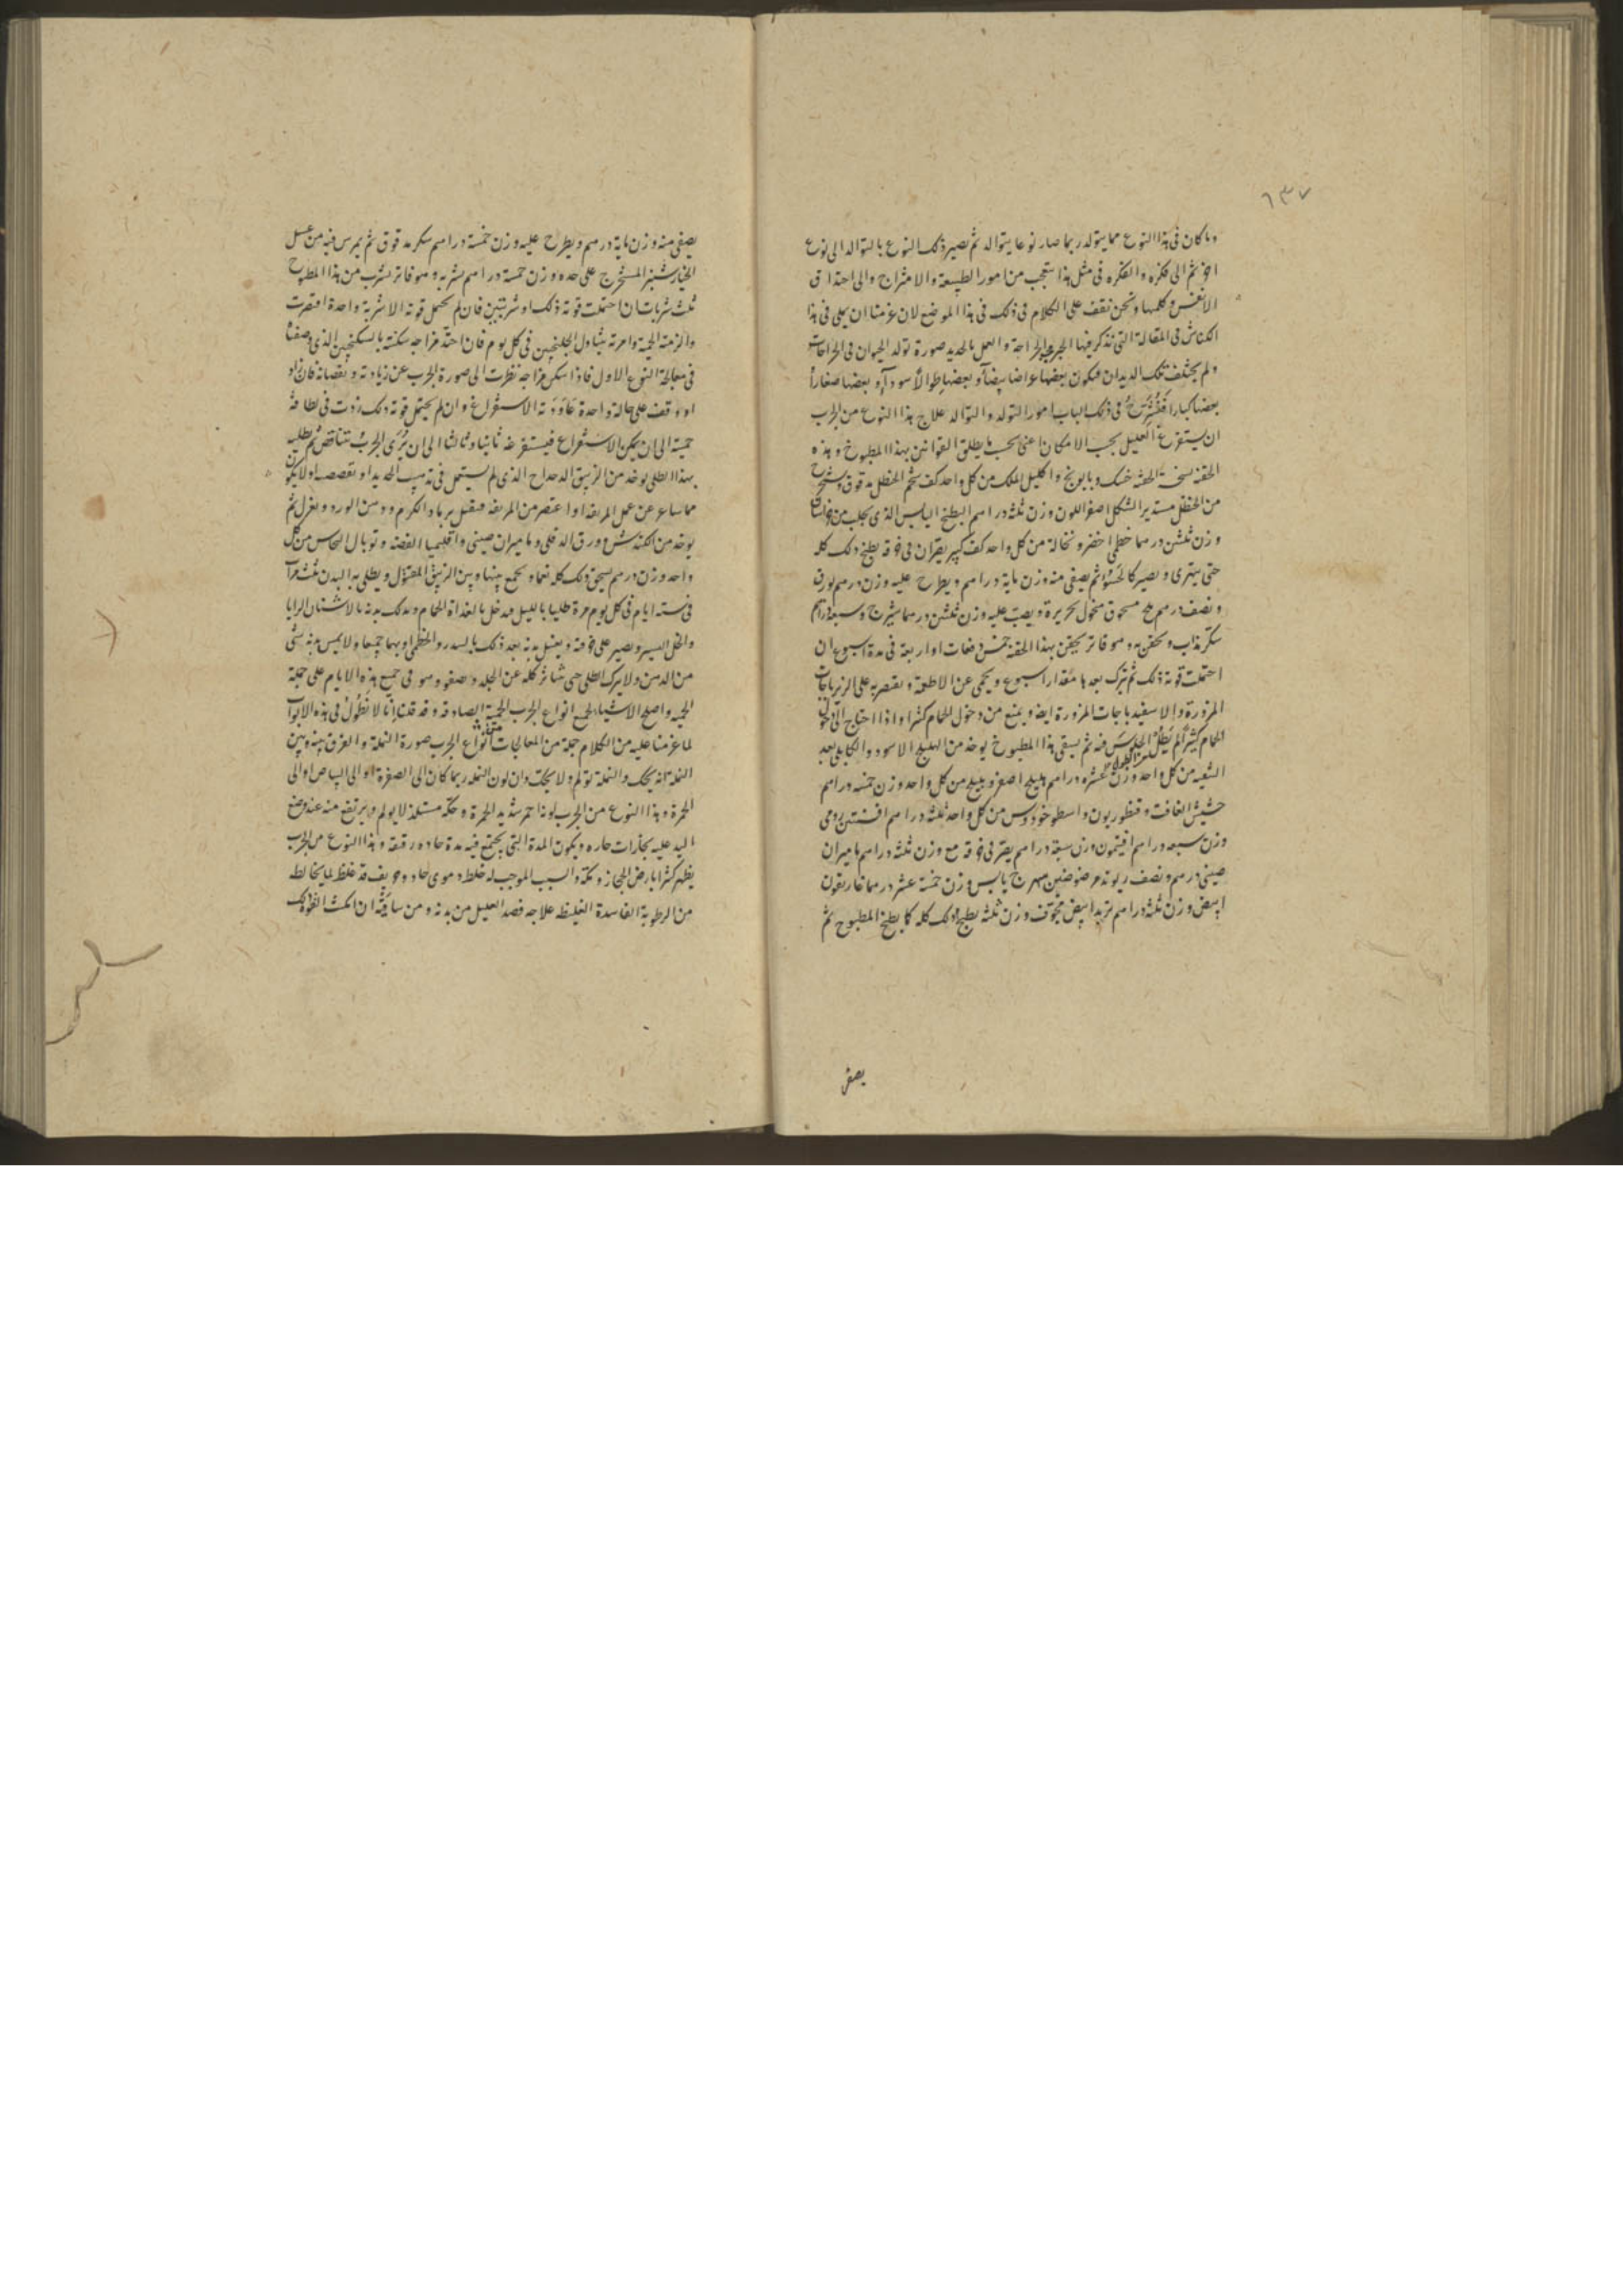 ٦٣٧
وما كان في هذا النوع مما يتولد ربما صار نوعا يتوالد ثم يصير ذلك النوع بالتوالد الى نوع
اخر ثم الى فكره والفكره في مثل هذا ستعجب من امور الطبيعة والامتزاج والى احتذاق
الانفس وكلمها ونحن نقف على الكلام في ذلك في هذا الموضع لان غرضنا ان يملى في هذا
الكناش في المقالة التي نذكر فيها الجبر والجراحة والعمل بالحديد صورة تولد الحيوان في الجراحات
ولم يختلف تلك الديدان فيكون بعضها عراضا بيضا وبعضها طوالا سودا وبعضها صغارا
بعضها كبارا فنشرح في ذلك الباب امور التولد والتوالد علاج هذا النوع من الجرب
ان يستفرغ العليل بحسب الامكان اعنى بحسب ما يطلق القوانين بهذا المطبوخ وهذه
الحقنه نسخة الحقنه خسك وبابونج واكليل الملك من كل واحد كف شحم الحنظل مدقوق
من الحنظل مستدير الشكل اصفر اللون وزن ثلثة دراهم البطيخ اليابس الذي يجلب من
وزن ثلثين درهما خطمى اخضر ونخالة من كل واحد كف كبير يصران في خرقه يطبخ ذلك كله
حتى يتهرى ويصير كالحسو ثم يصفى منه وزن ماية دراهم ويطرح عليه وزن درهم بورق
ونصف درهم ملح مسحوق منخول بحريرة ويصب عليه وزن ثلثين درهما شيرج وسبعة دراهم
سكر مذاب ويحقن به وهو فاتر يحقن بهذا الحقنه خمس دفعات او اربعة في مدة اسبوع ان
احتملت قوته ذلك ثم يترك بعدها مقدار اسبوع ويحمى عن الاطعمة ويقتصر به على الزيرباجات
المزورة والاسفيدباجات المزورة ايضا ويمنع من دخول الحمام كثيرا واذا احتاج الى دخول
الحمام كثيرا لم يطل الجلوس فيه ثم يسقى هذا المطبوخ يوخذ من الهليلج الاسود والكابلى بعد
الشعيه من كل واحد وزن عشره دراهم هليلج اصفر وبليلج من كل واحد وزن خمسه دراهم
حشيش الغافت وقنطوريون واسطوخودوس من كل واحد ثلثة دراهم افسنتين رومى
وزن سبعه دراهم افيثمون وزن سبعة دراهم يصر في خرقه مع وزن ثلثة دراهم ماميران
صينى درهم ونصف ريوند مرضوضين بهرج يابس وزن خمسة عشر درهما غاريقون
ابيض وزن ثلثة دراهم تربد ابيض مجوف وزن ثلثة يطبخ ذلك كله كما يطبخ المطبوخ ثم
يصفى
يصفى منه وزن ماية درهم ويطرح عليه وزن خمسة دراهم سكر مدقوق ثم يمرس فيه من عسل
الخيارشنبر المستخرج على حده وزن خمسة دراهم يشربه وهو فاتر يشرب من هذا المطبوخ
ثلث شربات ان احتملت قوته ذلك او شربتين فان لم يحتمل قوته الا شربة واحدة اقتصرت
والزمته الحمية وامرته بتناول الجلنجبين في كل يوم فان احتد مزاجه سكنته بالسكنجبين الذي وصفنا
في معالجة النوع الاول فاذا سكن مزاجه نظرت الى صورة الجرب عن زيادته ونقصانه فان زاد
او وقف على حالة واحدة عاودته الاستفراغ وان لم يحتمل قوته ذلك زدت في لطافة
حميته الى ان يمكن الاستفراغ فيستفرغه ثانيا وثالثا الى ان يرى الجرب يتناقص ثم يطليه
بهذا الطلى يوخذ من الزيبق الدحداح الذي لم يستعمل في تذهيب الحديد او
مما يباع عن عمل المريقه او اعتصر من المريقه فيقتل برماد الكرم ودهن الورد ويعزل ثم
يوخذ من الكندش وورق الدفلى وماميران صينى واقليميا الفضه وتوبال النحاس من كل
واحد وزن درهم يسحق ذلك كله نعما ويجمع بينها وبين الزيبق المقتول ويطلى به البدن ثلث مرات
في سته ايام في كل يوم مرة طليا بالليل فيدخل بالغداة الحمام ويدلك بدنه بالاشنان
والخل اليسير ويصبر على حرقته ويغسل بدنه بعد ذلك بالسدر والخطمى او بهما جميعا ولا يمس بدنه بشى
من الدهن ولا يترك الطلى حتى يتناثر كله عن الجلد ويصفو وهو في جميع هذه الايام على جملة
الحميه واصلح الاشياء لجميع انواع الجرب الحمية الصادقه وقد قلنا انا لا نطول في هذه الابواب
لما عزمنا عليه من الكلام جملة من المعالجات انواع الجرب صورة النملة والفرق بينه وبين
النملة انه يحك والنملة تولم ولا يحك وان لون النمله ربما كان الى الصفرة او الى البياض او الى
الحمرة وهذا النوع من الجرب لونه احمر شديد الحمرة وحكته مستلذ لا يولم ويرتفع منه عند وضع
اليد عليه بخارات حاره ويكون المدة التي يجتمع فيه مدة حاده رقيقه وهذا النوع من الجرب
يظهر كثيرا بارض الحجاز ومكة والسبب الموجب له خلط دموى حاد وحريف قد غلظ لما يخالطه
من الرطوبة الفاسدة الغليظه علاجه فصد العليل من يديه ومن ساقيه ان امكنت القوة ذلك